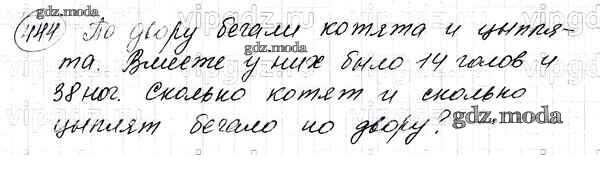 444 По двору бегали котята и цыпля-
та. Вместе у них было 14 голов и
38 ног. Сколько котят и сколько
цыплят бегало по двору?
gdz.moda
gdz.moda
gdz.moda